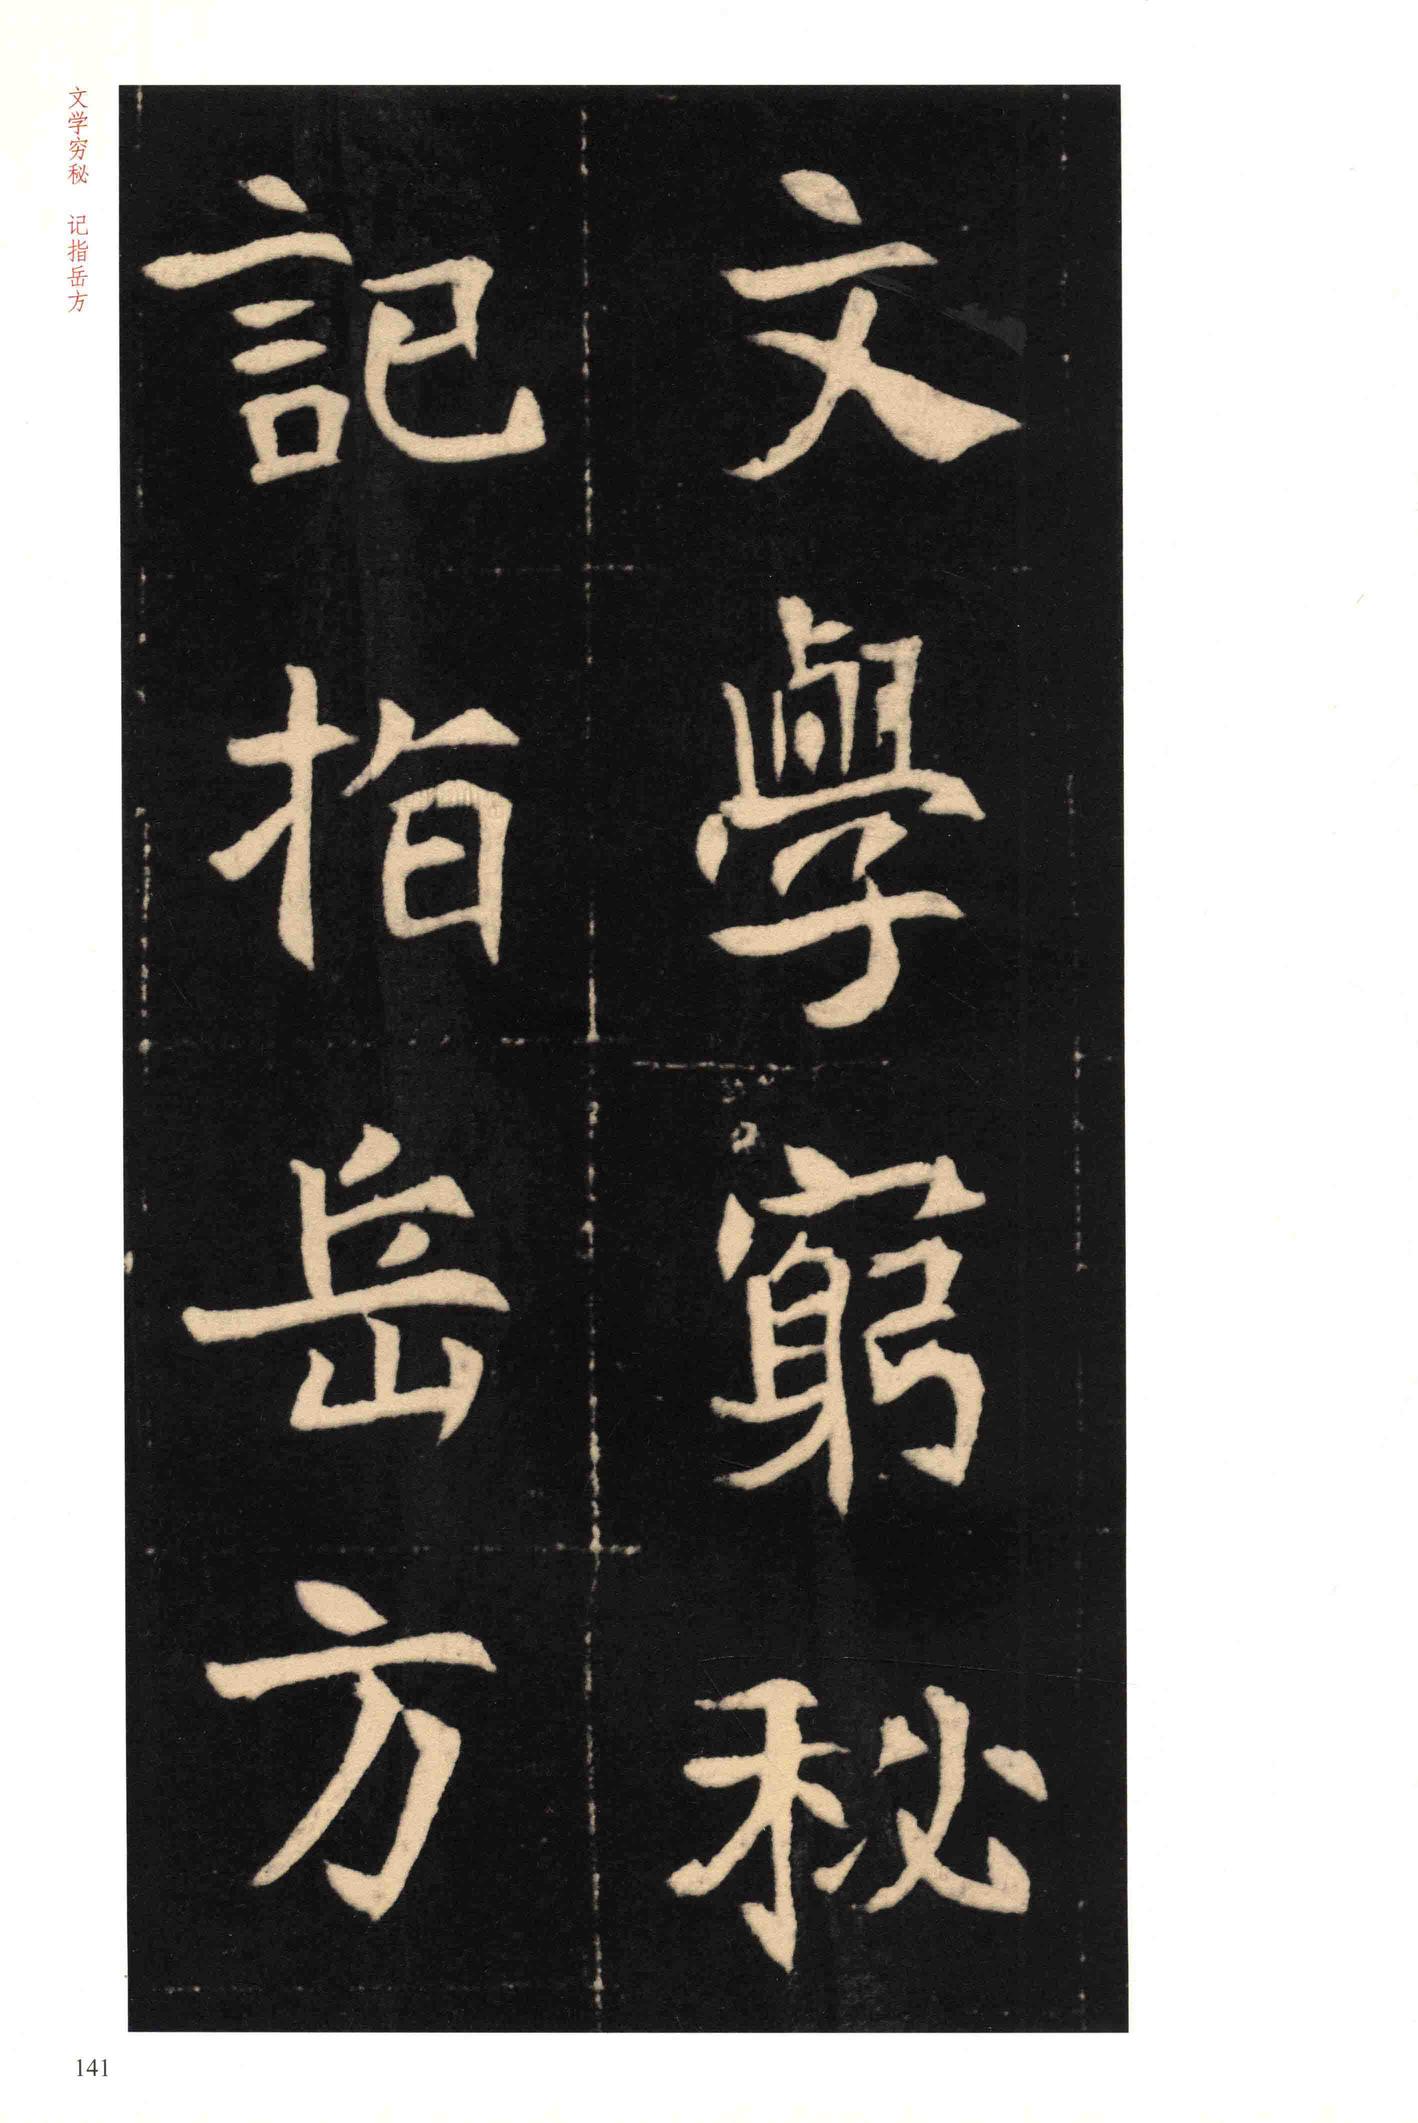 文學窮秘
記指岳方
文学穷秘 记指岳方
141